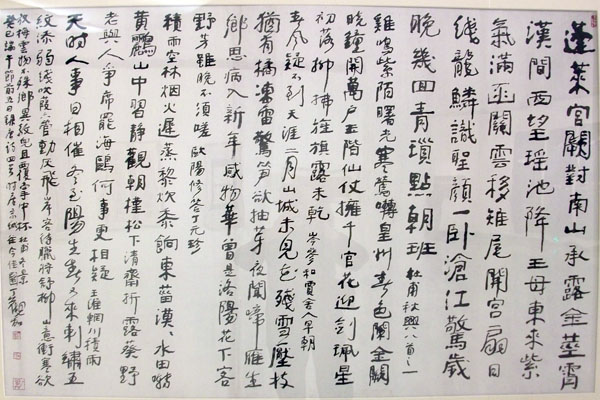 蓬萊宮闕對南山承露金莖霄
漢間西望瑤池降王母東來紫
氣滿函關雲移雉尾開宮扇日
繞龍鱗識聖顏一臥滄江驚歲
晚幾回青瑣點朝班 杜甫秋興八首之一
雞鳴紫陌曙光寒鶯囀皇州春色闌金闕
曉鐘開萬戶玉階仙仗擁千官花迎劍珮星
初落柳拂旌旗露未乾 岑參和賈舍人早朝
春風疑不到天涯二月山城未見花殘雪壓枝
猶有橘凍雷驚筍欲抽芽夜聞啼雁生
鄉思病入新年感物華曾是洛陽花下客
野芳雖晚不須嗟 歐陽修答元珍
積雨空林烟火遲蒸藜炊黍餉東菑漠〻水田囀
黃鸝山中習靜觀朝槿松下清齋折露葵野
老與人爭席罷海鷗何事更相疑 王維輞川積雨
天時人事日相催冬至陽生春又來刺繡五
紋添弱線吹葭六管動灰飛岸容待臘將舒柳山意衝寒欲
放梅雲物不殊鄉國異教兒且覆掌中杯 杜甫
癸巳端午節前五日錄唐詩四首